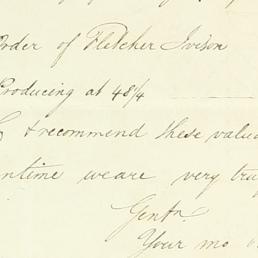 Order of Fletcher Ivison
Producing at 48¼
& recommend these valua
ntime we are very tru
Gentn
Your mo